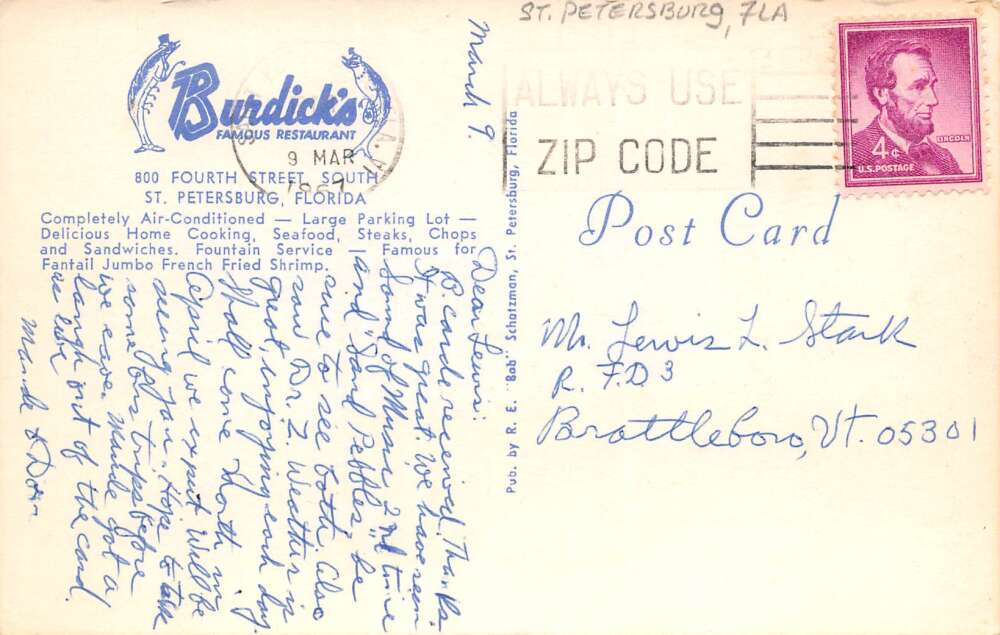 ST. PETERSBURG, FLA
Burdick's
FAMOUS RESTAURANT
800 FOURTH STREET, SOUTH
ST. PETERSBURG, FLORIDA
Completely Air-Conditioned — Large Parking Lot —
Delicious Home Cooking, Seafood, Steaks, Chops
and Sandwiches. Fountain Service — Famous for
Fantail Jumbo French Fried Shrimp.
9 MAR
1967
ALWAYS USE
ZIP CODE
4¢
LINCOLN
U.S. POSTAGE
Post Card
Pub. by R. E. "Bob" Schatzman, St. Petersburg, Florida
March 9.
Dear Lewis:
B. card received. Thanks.
It was great. We have seen
Sound of Music 2nd time
and "Sand Pebbles, be
sure to see both. Also
saw Dr. Z. Weather is
great, enjoying each day.
Shall come North in
April we expect. Will be
seeing you. Hope to take
some ons trips before
we leave. Maude got a
laugh out of the card
as
Maude & Dorn
Mr. Lewis L. Stark
R. F.D 3
Brattleboro, Vt. 05301